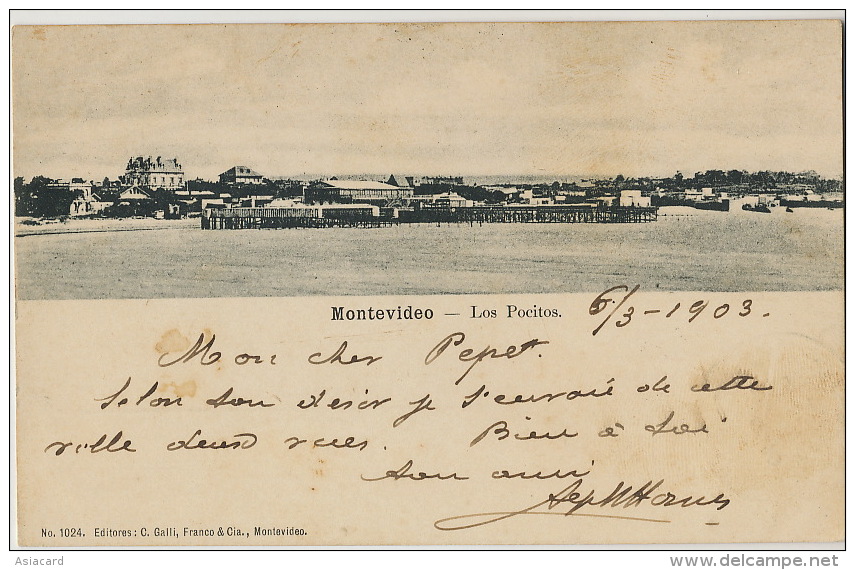 Montevideo — Los Pocitos.
6/3-1903.
Mon cher Pepet.
Selon ton désir je t'envoie de cette
ville deux vues. Bien à toi
ton ami
No. 1024. Editores: C. Galli, Franco & Cia., Montevideo.
Asiacard
www.delcampe.net